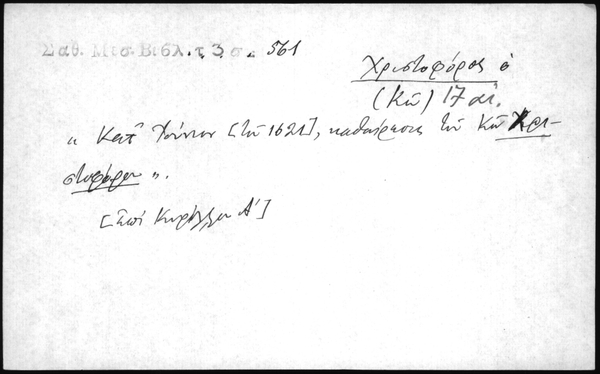 Σαθ. Μεσ. Βιβλ. τ. 3, σ. 561
Χριστοφόρος ὁ
(Κῶ) 17 αἰ.
« Κατ' Ἰούνιον [τοῦ 1621], καθαίρεσις τοῦ Κῶ Χρι-
στοφόρου ».
[Ἐπὶ Κυρίλλου Α']